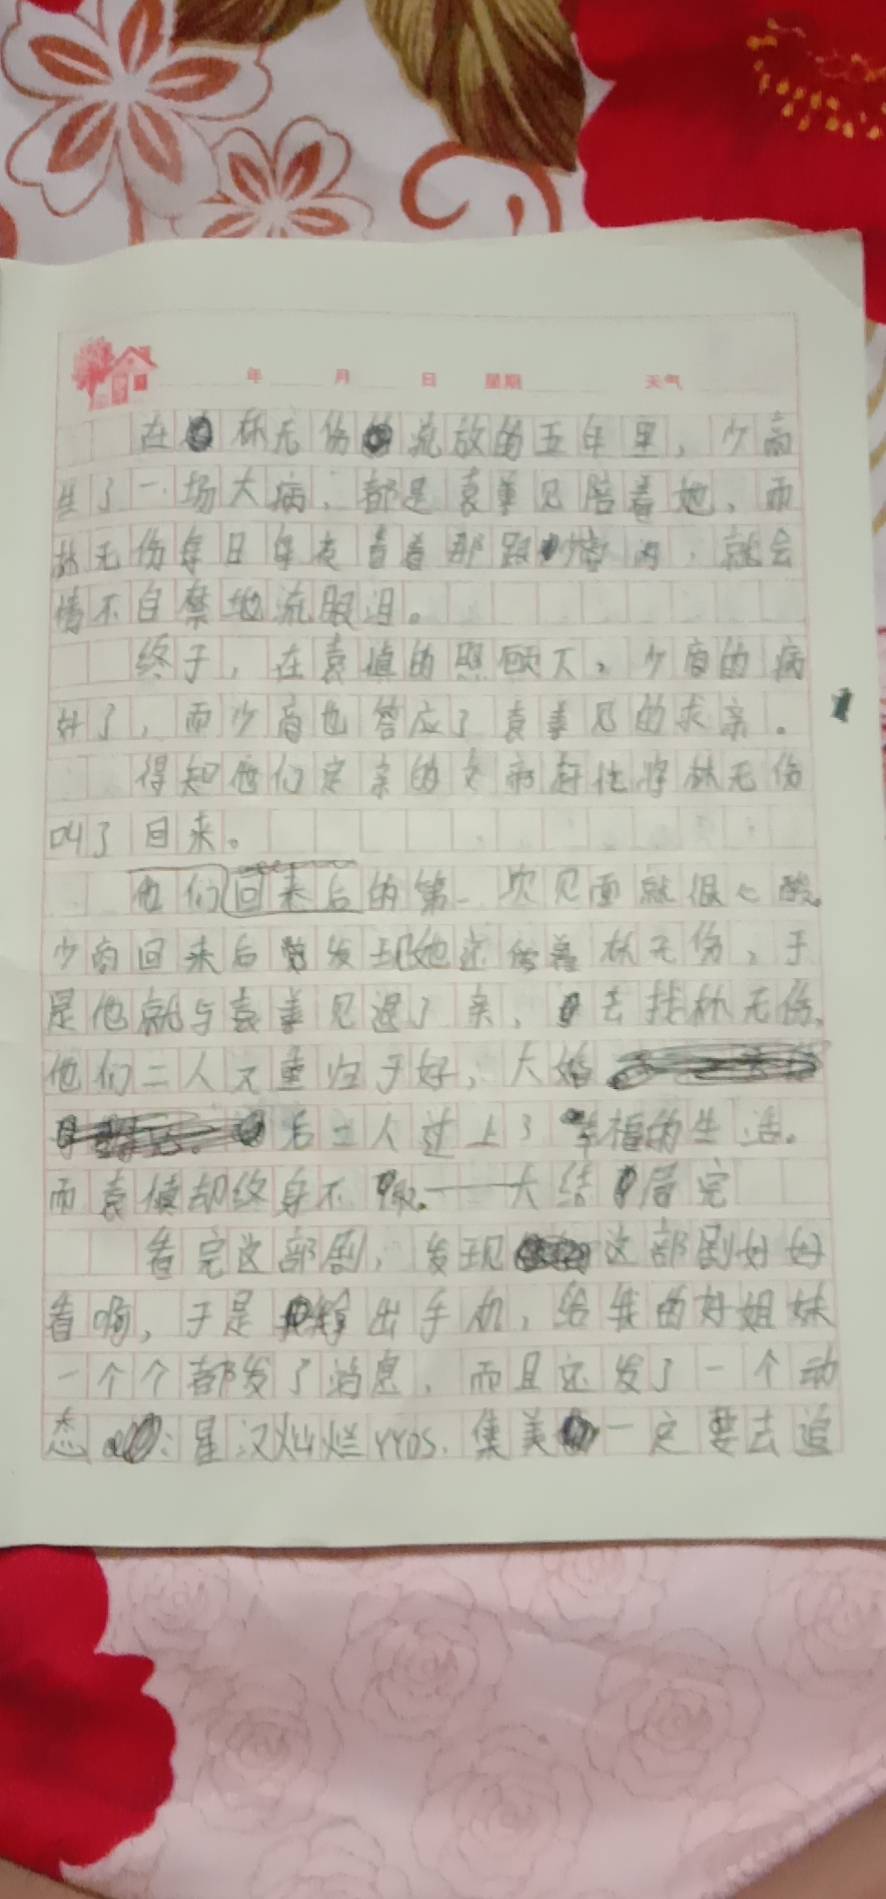 年 月 日 星期 天气
在林无伤流放的五年里，少商
生了一场大病，都是袁善见陪着她，而
林无伤每日每夜看着那跟，就会
情不自禁地流眼泪。
终于，在袁慎的照顾下，少商的病
好了，而少商也答应了袁善见的求亲。
得知他们定亲的文帝赶忙将林无伤
叫了回来。
他们回来后的第一次见面就很心酸。
少商回来后发现她还信着林无伤，于
是他就与袁善见退了亲，去找林无伤，
他们二人又重归于好，大婚
后二人过上了幸福的生活。
而袁慎却终身不取。——大结局完
看完这部剧，发现这部剧好好
看啊，于是拿出手机，给我的好姐妹
一个个都发了消息，而且还发了一个动
态：星汉灿烂YYDS，集美一定要去追